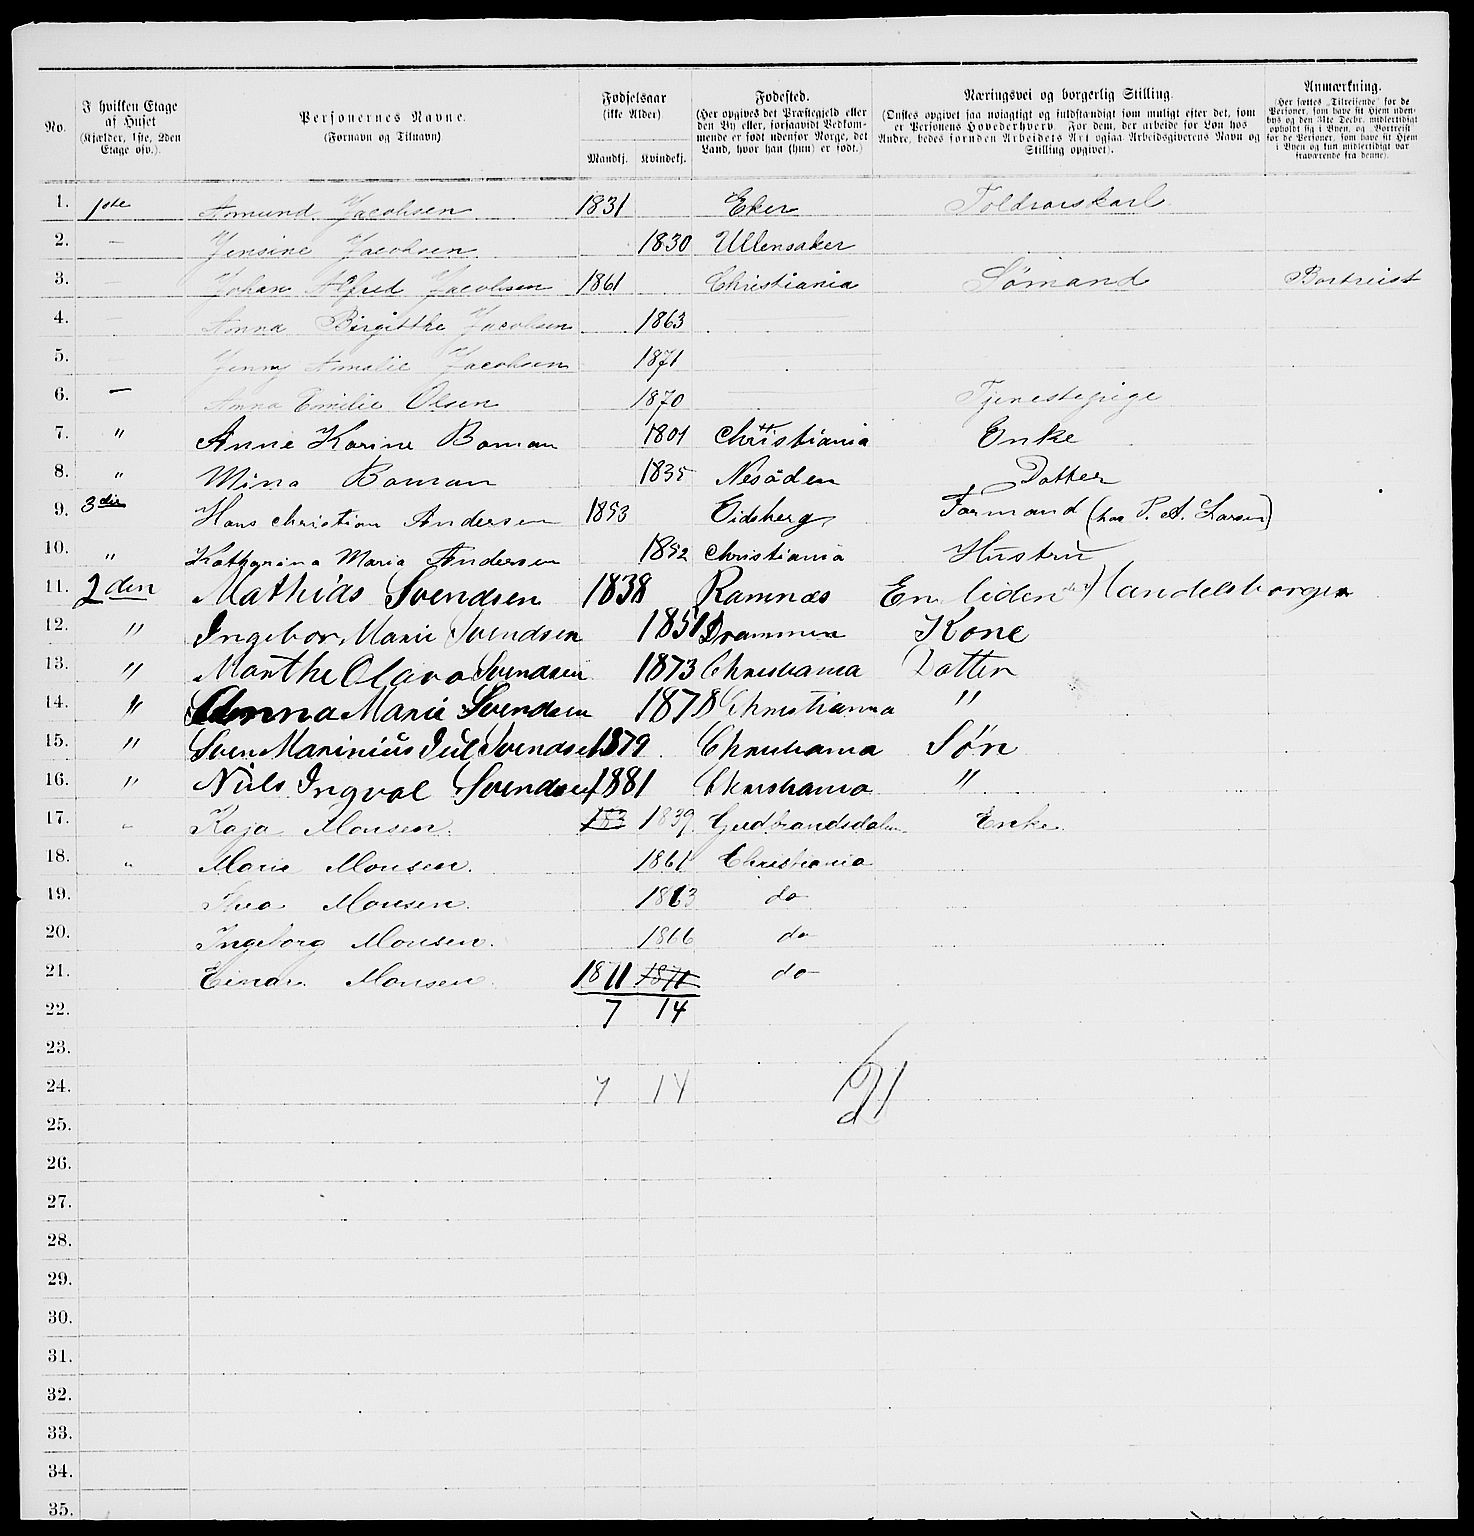 No.
I hvilken Etage af Huset (Kjælder, 1ste, 2den Etage osv.).
Personernes Navne. (Fornavn og Tilnavn)
Fødselsaar (ikke Alder) Mandkj. Kvindekj.
Fødested. (Her opgives det Præstegjeld eller den By eller, forsaavidt Vedkommende er født udenfor Norge, det Land, hvor han (hun) er født.)
Næringsvei og borgerlig Stilling. (Ønskes opgivet saa nøiagtigt og fuldstændigt som muligt efter det, som er Personens Hovederhverv. For dem, der arbeide for Løn hos Andre, bedes foruden Arbeidets Art ogsaa Arbeidsgiverens Navn og Stilling opgivet).
Anmærkning. (Her sættes „Tilreisende" for de Personer, som have sit Hjem udenbys og den 31te Decbr. midlertidigt opholdt sig i Byen, og „Bortreist" for de Personer, som have sit Hjem i Byen og kun midlertidigt var fraværende fra denne).
1. 1ste Amund Jacobsen 1831 Eker Toldrorskarl
2. — Jensine Jacobsen 1830 Ullensaker
3. — Johan Alfred Jacobsen 1861 Christiania Sømand Bortreist
4. — Anna Birgitthe Jacobsen 1863 —
5. — Jenny Amalie Jacobsen 1871 —
6. — Anna Emilie Olsen 1870 — Tjenestepige
7. " Anne Karine Boman 1801 Christiania Enke
8. " Mina Boman 1835 Nesöden Datter
9. 3die Hans Christian Andersen 1853 Eidsberg Formand (hos P. A. Larsen)
10. " Katharina Maria Andersen 1852 Christiania Hustru
11. 2den Mathias Svendsen 1838 Ramnæs En liden Handelsborger
12. " Ingebor Marie Svendsen 1851 Drammen Kone
13. " Marthe Olava Svendsen 1873 Christiania Datter
14. " Anna Marie Svendsen 1878 Christiania "
15. " Sven Marinius Jul Svendsen 1879 Christiania Søn
16. " Nils Ingval Svendsen 1881 Christiania "
17. " Kaja Monsen. 183 1839 Gudbrandsdalen Enke
18. " Maria Monsen. 1861 Christiania
19. Thea Monsen. 1863 do
20. Ingeborg Monsen. 1866 do
21. Einar Monsen. 1871 1871 do
22. 7 14
23.
24. 7 14 21
25.
26.
27.
28.
29.
30.
31.
32.
33.
34.
35.